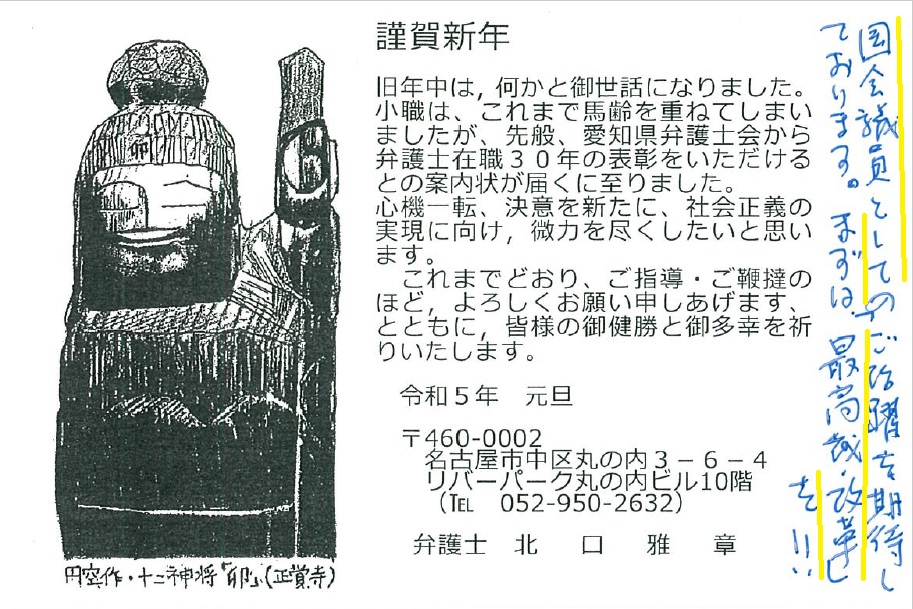 謹賀新年
旧年中は，何かと御世話になりました。
小職は、これまで馬齢を重ねてしまい
ましたが、先般、愛知県弁護士会から
弁護士在職３０年の表彰をいただける
との案内状が届くに至りました。
心機一転、決意を新たに、社会正義の
実現に向け，微力を尽くしたいと思い
ます。
これまでどおり、ご指導・ご鞭撻の
ほど，よろしくお願い申しあげます、
とともに，皆様の御健勝と御多幸を祈
りいたします。
令和５年　元旦
〒460-0002
名古屋市中区丸の内３－６－４
リバーパーク丸の内ビル10階
（℡　052-950-2632）
弁護士　北　口　雅　章
国会議員としてのご活躍を期待し
ております。まずは、最高裁・改革し
を!!
卯
円空作・十二神将「卯」(正覚寺)